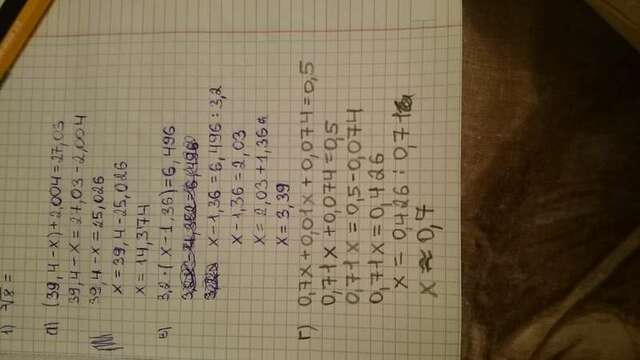 1) ∛8 =
а) (39,4 - x) + 2,004 = 27,03
39,4 - x = 27,03 - 2,004
39,4 - x = 25,026
x = 39,4 - 25,026
x = 14,374
в) 3,2 · (x - 1,36) = 6,496
x - 1,36 = 6,496 : 3,2
x - 1,36 = 2,03
x = 2,03 + 1,36
x = 3,39
г) 0,7x + 0,01x + 0,074 = 0,5
0,71x + 0,074 = 0,5
0,71x = 0,5 - 0,074
0,71x = 0,426
x = 0,426 : 0,71
x ≈ 0,7